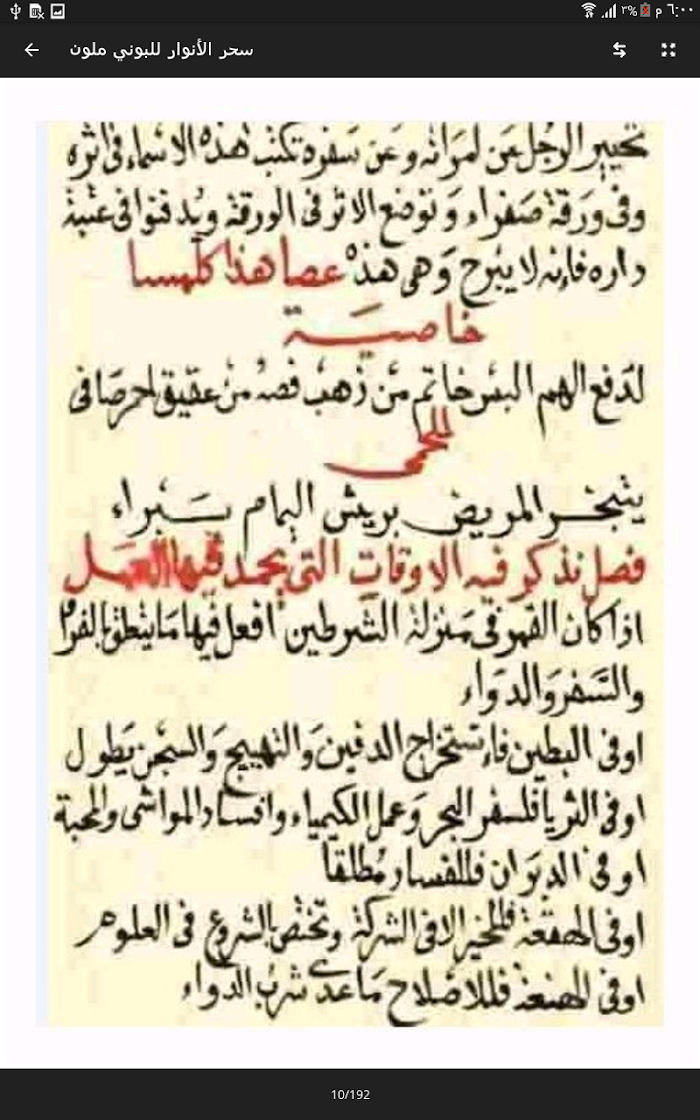 ٦:٠٠ م ٣%
سحر الأنوار للبوني ملون
تحيير الرجل عن امرأته وعن سفره تكتب هذه الاسماء فى اثره
وفى ورقة صفراء وتوضع الاثر فى الورقة ويدفنوا فى عتبة
داره فإنه لا يبرح وهى هذه عصا هذا كلهسا
خاصية
لدفع الهم البس خاتم من ذهب فصه من عقيق احر صافى
للحمى
يتبخر المريض بريش اليمام يبراء
فصل نذكر فيه الاوقات التى يحمد فيها العمل
اذا كان القمر فى منزلة الشرطين افعل فيها ما يتطق بالفراق
والسفر والدواء
اوفى البطين فاستخراج الدفين والتهييج والسجن يطول
اوفى الثريا فلسفر البحر وعمل الكيمياء وافساد المواشى والمحبة
اوفى الدبران فللفساد مطلقا
اوفى الهقعة فللخير الا فى الشركة وتختص بالشروع فى العلوم
اوفى الهنعة فللاصلاح ما عدى شرب الدواء
10/192